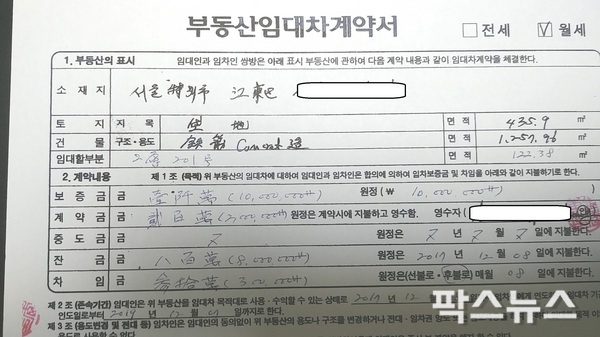 부동산임대차계약서 □ 전세 ☑ 월세
1. 부동산의 표시 임대인과 임차인 쌍방은 아래 표시 부동산에 관하여 다음 계약 내용과 같이 임대차계약을 체결한다.
소 재 지 서울 特別市 江東區
토 지 지 목 垈 地 면 적 435.9 ㎡
건 물 구조·용도 鉄筋 Concret 造 면 적 1,257.96 ㎡
임대할부분 2層 201号 면 적 122.38 ㎡
2. 계약내용 제 1 조 (목적) 위 부동산의 임대차에 대하여 임대인과 임차인은 합의에 의하여 임차보증금 및 차임을 아래와 같이 지불하기로 한다.
보 증 금 금 壹阡萬 (10,000,000) 원정 (₩ 10,000,000 )
계 약 금 금 貳百萬 (2,000,000) 원정은 계약시에 지불하고 영수함. 영수자 (
중 도 금 금 원정은 년 월 일에 지불한다.
잔 금 금 八百萬 (8,000,000) 원정은 2017 년 12 월 08 일에 지불한다.
차 임 금 參拾萬 (300,000) 원정은 (선불로·후불로) 매월 08 일에 지불한다.
제 2 조 (존속기간) 임대인은 위 부동산을 임대차 목적대로 사용·수익할 수 있는 상태로 2017 년 12
인도일로부터 2019 년 12 월 일까지로 한다.
제 3 조 (용도변경 및 전대 등) 임차인은 임대인의 동의없이 위 부동산의 용도나 구조를 변경하거나 전대·임차권
팍스뉴스